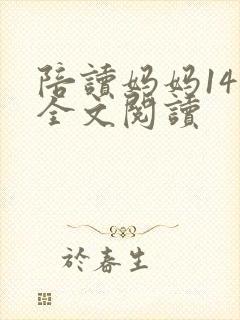 陪讀媽媽14
全文閱讀
於春生